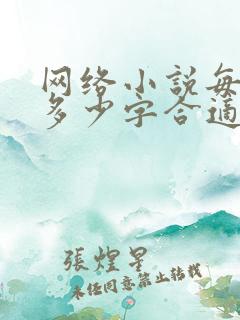 网络小说每
多少字合适
張煌星
未经同意禁止转载